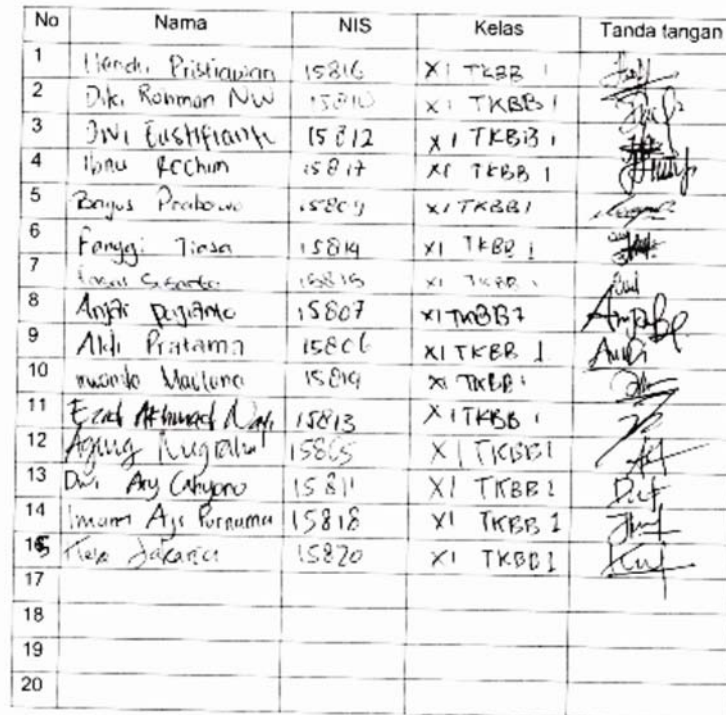 No Nama NIS Kelas Tanda tangan
1 Hendi Pristiawan 15816 XI TKBB 1
2 Diki Rohman NW 15810 XI TKBB 1
3 Dwi 15812 XI TKBB 1
4 Ibnu Rochim 15817 XI TKBB 1
5 Bagus Prabowo 15809 XI TKBB1
6 Fanggi Tiasa 15814 XI TKBB 1
7 15815 XI TKBB 1
8 Anjar 15807 XI TKBB1
9 Aldi Pratama 15806 XI TKBB 1
10 Maulana 15819 XI TKBB 1
11 Akhmad 15813 XI TKBB 1
12 Agung Nugraha 15805 XI TKBB1
13 Dwi Ary Cahyono 15811 XI TKBB 1
14 Imam Aji Purnama 15818 XI TKBB 1
15 Jakaria 15820 XI TKBB 1
17
18
19
20